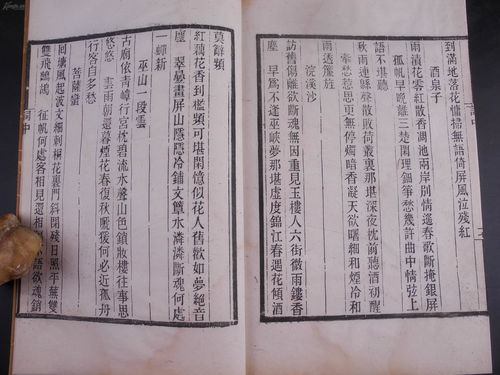 到滿地落花慵掃無語倚屏風泣殘紅
酒泉子
雨漬花零紅散香凋池兩岸別情遙春歌斷掩銀屏
孤帆早晚離三楚閒理鈿箏愁幾許曲中情弦上
語不堪聽
秋雨連緜聲散敗荷叢裏那堪深夜枕前聽酒初醒
牽愁惹思更無停燭暗香凝天欲曙細和煙冷和
雨透簾旌
浣溪沙
訪舊傷離欲斷魂無因重見玉樓人六街微雨鏤香
塵 早爲不逢巫峽夢那堪虛度錦江春遇花傾酒
莫辭頻
紅藕花香到檻頻可堪閒憶似花人舊歡如夢絕音
塵 翠疊畫屏山隱隱冷鋪文簟水潾潾斷魂何處
一蟬新
巫山一段雲
古廟依青嶂行宮枕碧流水聲山色鎖妝樓往事思
悠悠 雲雨朝還暮煙花春復秋啼猨何必近孤舟
行客自多愁
菩薩蠻
回塘風起波文細刺桐花裏門斜閉殘日照平蕪雙
雙飛鷓鴣 征帆何處客相見還相 語欲魂銷